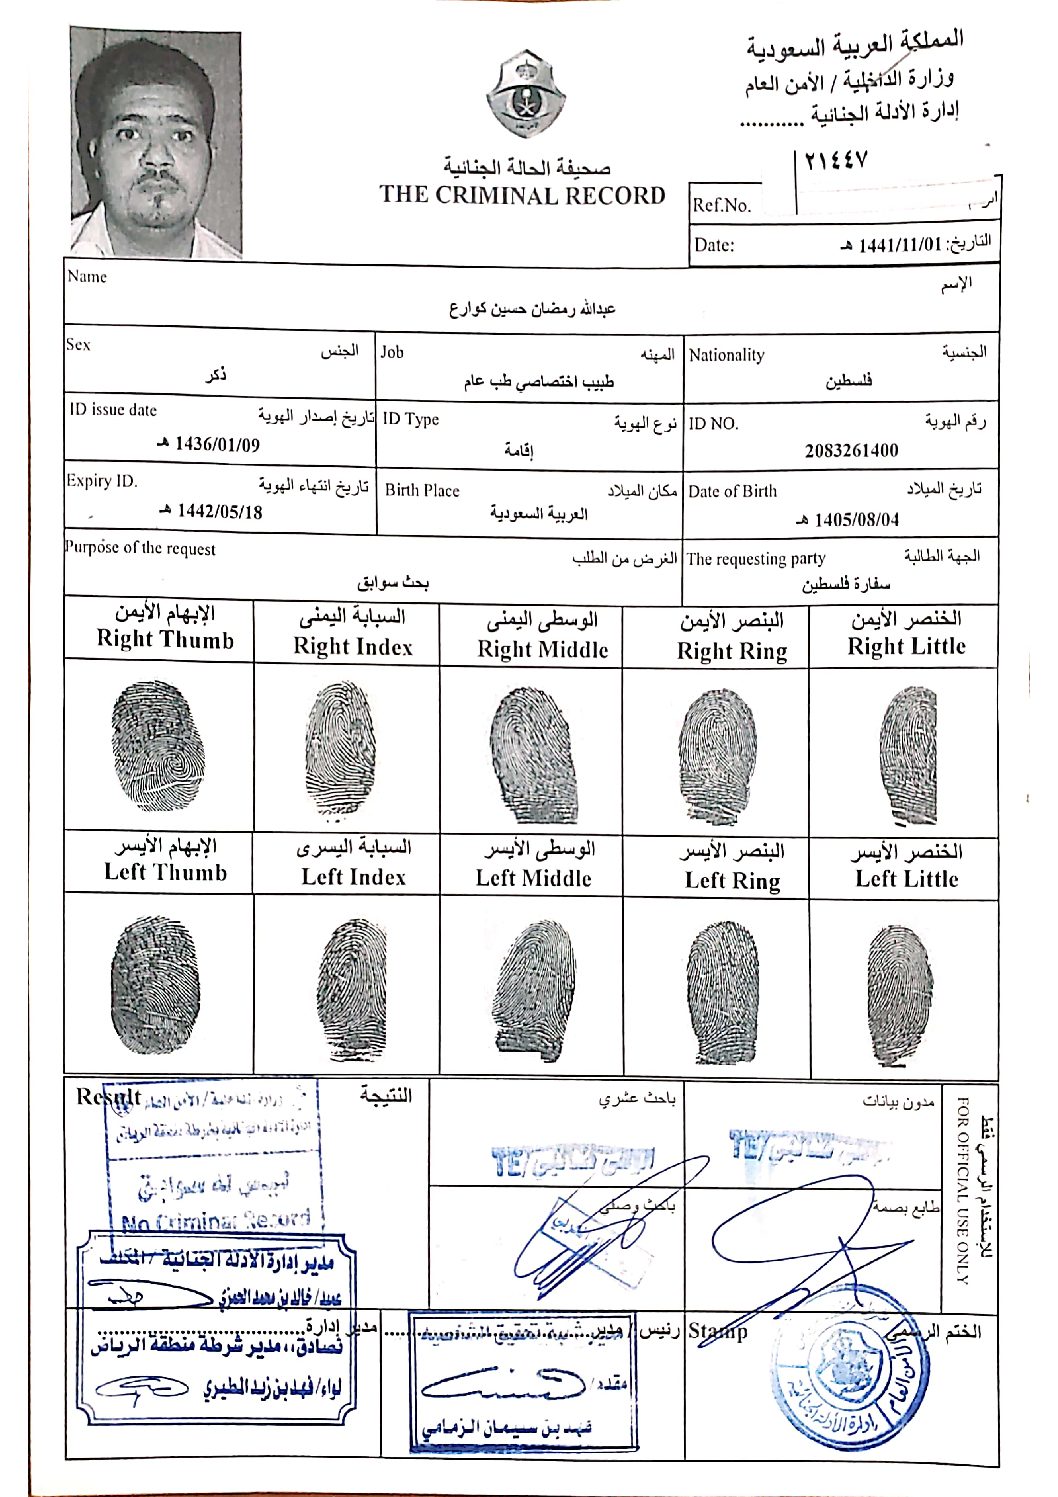 المملكة العربية السعودية
وزارة الداخلية / الأمن العام
إدارة الأدلة الجنائية ...........
صحيفة الحالة الجنائية
THE CRIMINAL RECORD
٢١٤٤٧
Ref.No.
Date: التاريخ: 1441/11/01 هـ
Name الإسم
عبدالله رمضان حسين كوارع
Sex الجنس
ذكر
Job المهنه
طبيب اختصاصي طب عام
Nationality الجنسية
فلسطين
ID issue date تاريخ إصدار الهوية
1436/01/09 هـ
ID Type نوع الهوية
إقامة
ID NO. رقم الهوية
2083261400
Expiry ID. تاريخ انتهاء الهوية
1442/05/18 هـ
Birth Place مكان الميلاد
العربية السعودية
Date of Birth تاريخ الميلاد
1405/08/04 هـ
Purpose of the request الغرض من الطلب
بحث سوابق
The requesting party الجهة الطالبة
سفارة فلسطين
الإبهام الأيمن
Right Thumb
السبابة اليمنى
Right Index
الوسطى اليمنى
Right Middle
البنصر الأيمن
Right Ring
الخنصر الأيمن
Right Little
الإبهام الأيسر
Left Thumb
السبابة اليسرى
Left Index
الوسطى الأيسر
Left Middle
البنصر الأيسر
Left Ring
الخنصر الأيسر
Left Little
Result النتيجة
باحث عشري
مدون بيانات
للإستخدام الرسمي فقط
FOR OFFICIAL USE ONLY
باحث وصلي
طابع بصمة
No Criminal Record
مدير إدارة الأدلة الجنائية / المكلف
عميد/ خالد بن محمد العمري
مدير إدارة
نصادق،، مدير شرطة منطقة الرياض
لواء/ فهد بن زيد المطيري
رئيس / مدير
مقدم/
فهد بن سليمان الزمامي
Stamp الختم الرسمي
الأمن العام
إدارة الأدلة الجنائية